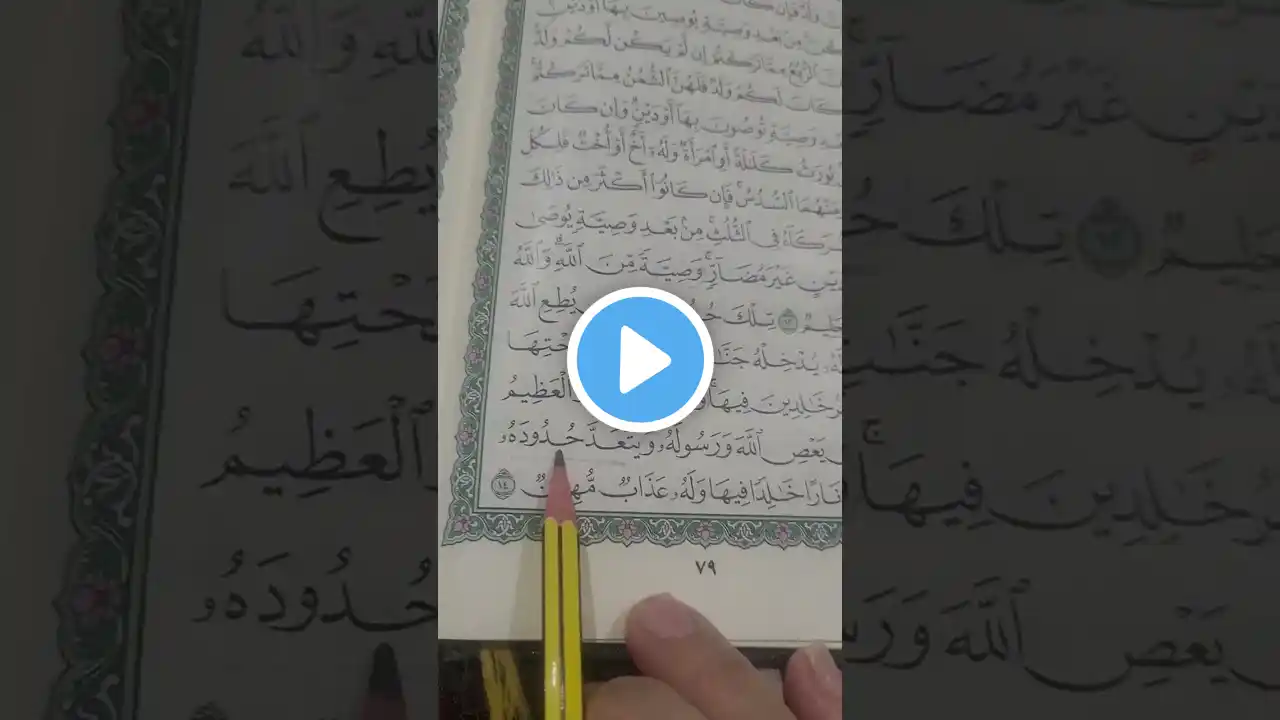 وَلَدٌ فَإِن كَانَ
مِنۢ بَعْدِ وَصِيَّةٍ يُوصِينَ بِهَآ أَوْ دَيْنٍ
ٱلرُّبُعُ مِمَّا تَرَكْتُمْ إِن لَّمْ يَكُن لَّكُمْ وَلَدٌ
كَانَ لَكُمْ وَلَدٌ فَلَهُنَّ ٱلثُّمُنُ مِمَّا تَرَكْتُم
وَصِيَّةٍ تُوصُونَ بِهَآ أَوْ دَيْنٍ وَإِن كَانَ
يُورَثُ كَلَٰلَةً أَوِ ٱمْرَأَةٌ وَلَهُۥٓ أَخٌ أَوْ أُخْتٌ فَلِكُلِّ
مِّنْهُمَا ٱلسُّدُسُ فَإِن كَانُوٓا۟ أَكْثَرَ مِن ذَٰلِكَ
شُرَكَآءُ فِى ٱلثُّلُثِ مِنۢ بَعْدِ وَصِيَّةٍ يُوصَىٰ
دَيْنٍ غَيْرَ مُضَآرٍّ وَصِيَّةً مِّنَ ٱللَّهِ وَٱللَّهُ
حَلِيمٌ ١٣ تِلْكَ يُطِعِ ٱللَّهَ
يُدْخِلْهُ
خَٰلِدِينَ فِيهَا ٱلْعَظِيمُ
يَعْصِ ٱللَّهَ وَرَسُولَهُۥ وَيَتَعَدَّ حُدُودَهُۥ
نَارًا خَٰلِدًا فِيهَا وَلَهُۥ عَذَابٌ مُّهِينٌ ١٤
٧٩